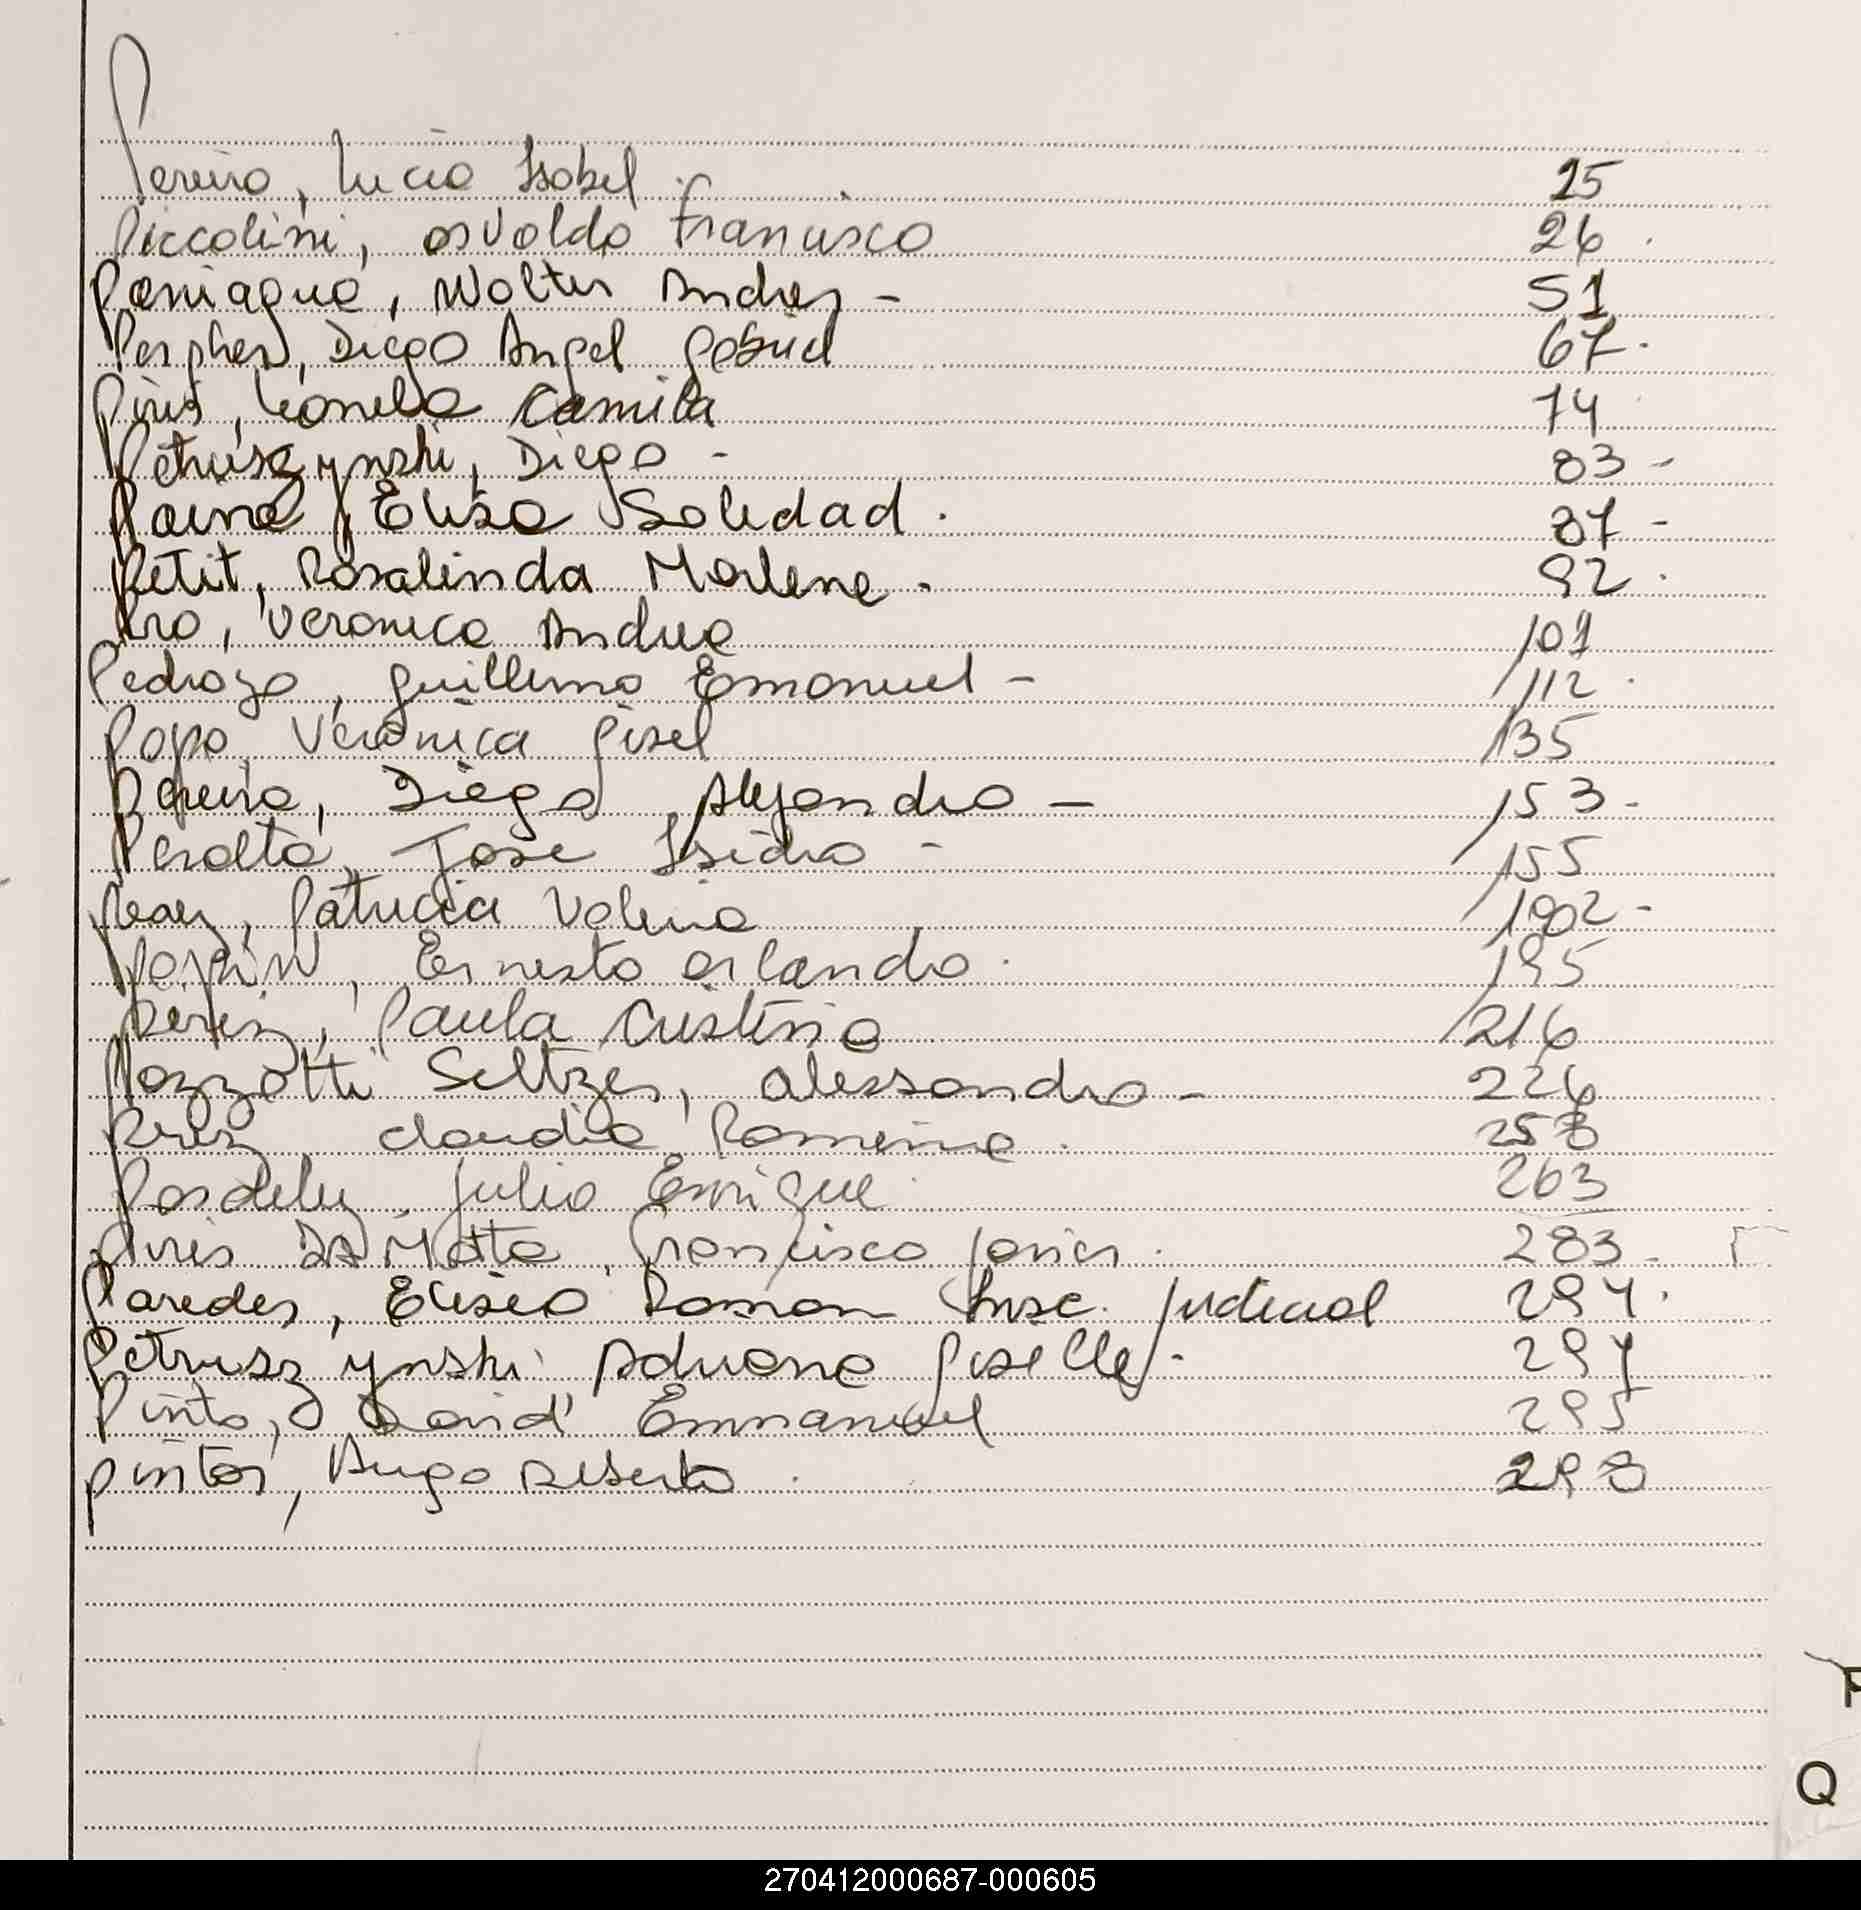 P
Pereira, Lucia Isabel. 25
Piccolini, Osvaldo Francisco 26.
Paniagua, Walter Andres - 51
Diego Angel Gabriel 67.
Piris, Leonela Camila 74
Petruszynski, Diego - 83 -
Paiva, Elisa Soledad. 87 -
Petit, Rosalinda Marlene. 92.
Pro, Veronica Andrea 101
Pedrozo, Guillermo Emanuel - 112.
Popo, Veronica Gisel 135
Pereira, Diego Alejandro - 153 -
Peralta, Jose Isidro - 155
Paez, Patricia Valeria
Ernesto Orlando. 195
Perez, Paula Cristina 216
Pazzotti Seltzer, Alessandro - 226
Perez Claudia Romina. 258
Posdeley, Julio Enrique. 263
Piris Da Motta, Francisco Javier. 283 -
Paredes, Eliseo Roman Insc. judicial 294.
Petruszynski Adriana Giselle - 297
Pinto, David Emmanuel 295
Pintos, Hugo Alberto. 298
Q
270412000687-000605